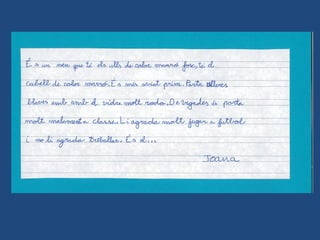 És un nen que té els ulls de color marró fosc, té el
cabell de color marró. És més aviat prim. Porta ulleres
blaves amb amb el vidre molt rodó. De vegades es porta
molt malament a classe. Li agrada molt jugar a futbol
i no li agrada treballar. És el...
Joana